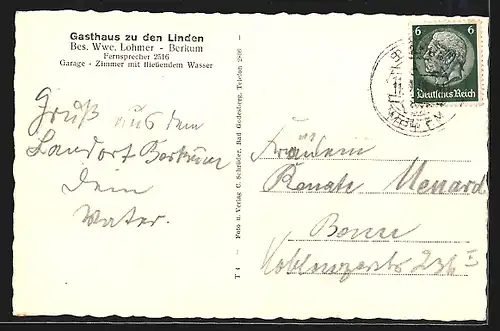 Gasthaus zu den Linden
Bes. Wwe. Lohmer - Berkum
Fernsprecher 2516
Garage - Zimmer mit fließendem Wasser
Gruß aus dem
Landort Berkum
Dein
Vater.
T 4 — Foto u. Verlag C. Schröder, Bad Godesberg, Telefon 2866 —
6 6
Deutsches Reich
MEHLEM
Fräulein
Renate Menard
Bonn
Koblenzerstr 236 I